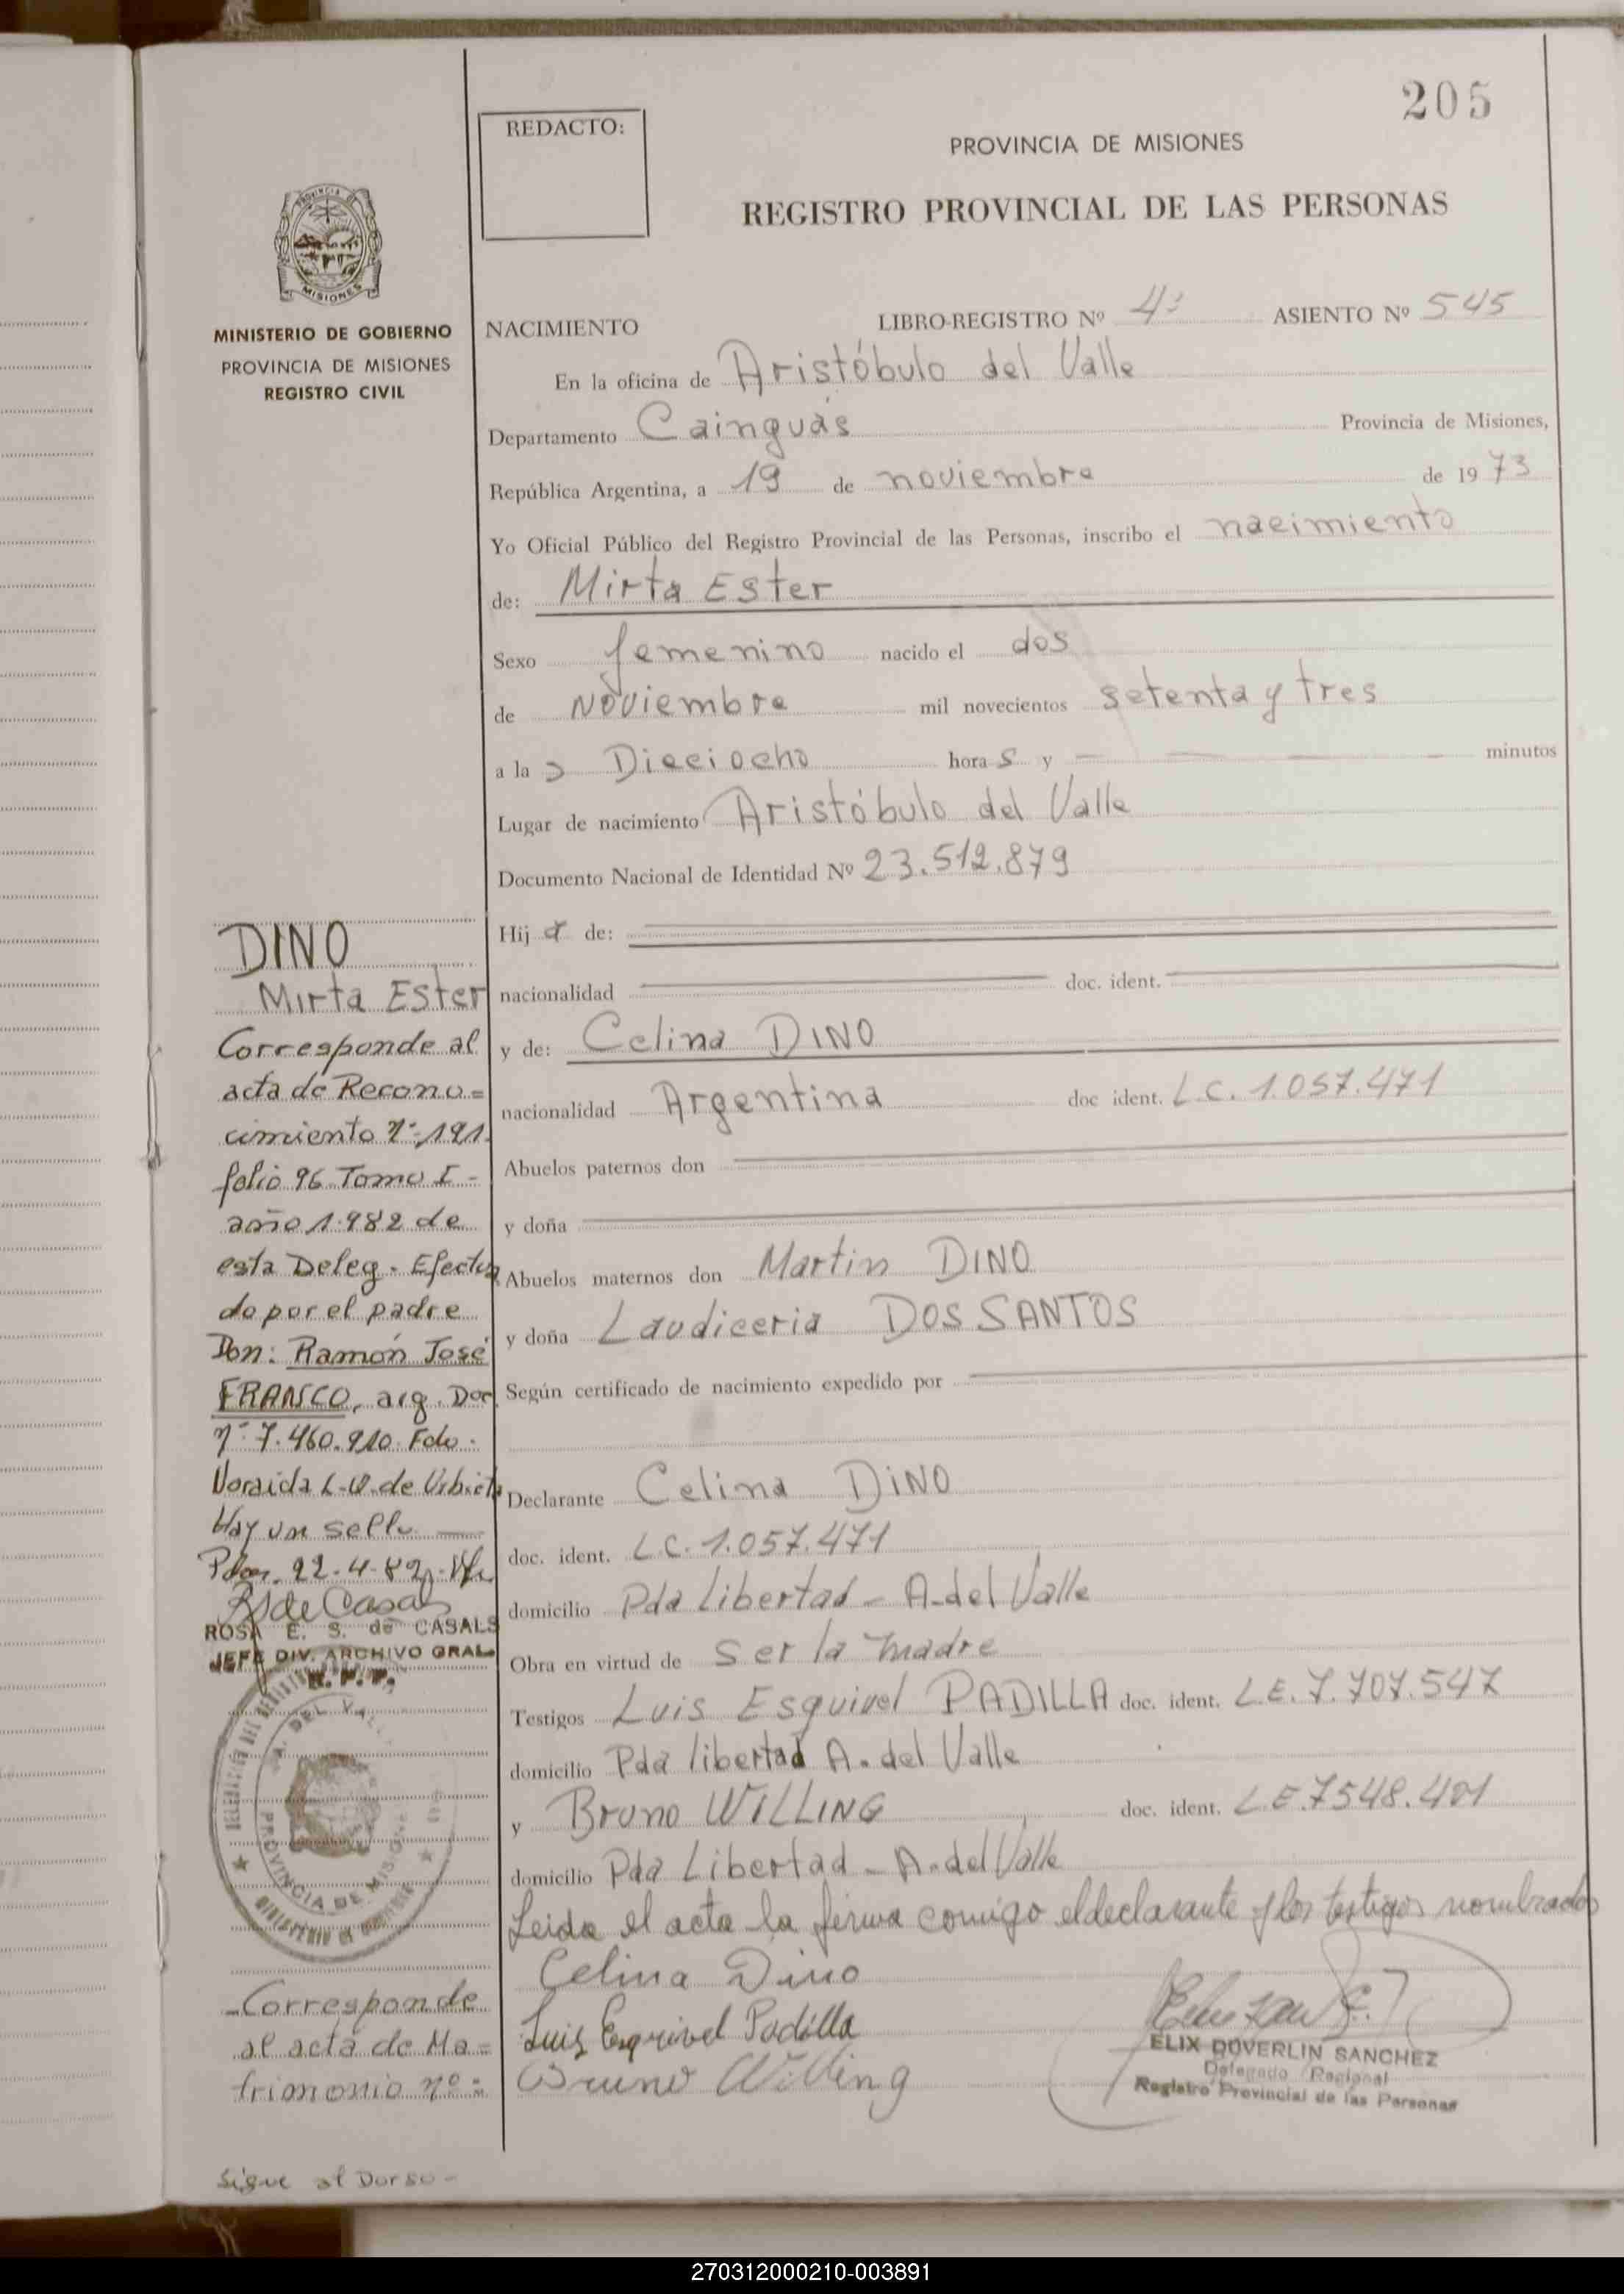 205
REDACTO:
PROVINCIA DE MISIONES
REGISTRO PROVINCIAL DE LAS PERSONAS
MISIONES
MINISTERIO DE GOBIERNO
PROVINCIA DE MISIONES
REGISTRO CIVIL
NACIMIENTO LIBRO-REGISTRO Nº 4: ASIENTO Nº 545
En la oficina de Aristóbulo del Valle
Departamento Cainguás Provincia de Misiones,
República Argentina, a 19 de noviembre de 1973
Yo Oficial Público del Registro Provincial de las Personas, inscribo el nacimiento
de: Mirta Ester
Sexo femenino nacido el dos
de Noviembre mil novecientos setenta y tres
a la s Dieciocho hora s y — — — — minutos
Lugar de nacimiento Aristóbulo del Valle
Documento Nacional de Identidad Nº 23.512.879
Hij a de:
nacionalidad doc. ident.
y de: Celina DINO
nacionalidad Argentina doc ident. L.C. 1.057.471
Abuelos paternos don
y doña
Abuelos maternos don Martin DINO
y doña Laudiceria DOS SANTOS
Según certificado de nacimiento expedido por
Declarante Celina DINO
doc. ident. L.C. 1.057.471
domicilio Pda Libertad - A. del Valle
Obra en virtud de ser la madre
Testigos Luis Esquivel PADILLA doc. ident. L.E. 7.707.547
domicilio Pda libertad A. del Valle
y Bruno WILLING doc. ident. L.E. 7548.401
domicilio Pda Libertad - A. del Valle
Leida el acta la firma comigo el declarante y los testigos nombrados
Celina Dino
Luis Esquivel Padilla
Bruno Willing
ELIX DOVERLIN SANCHEZ
Delegado Regional
Registro Provincial de las Personas
DINO
Mirta Ester
Corresponde al
acta de Recono=
cimiento Nº 191
folio 96 Tomo I -
año 1.982 de
esta Deleg. Efectua
do por el padre
Don: Ramón José
FRANCO, arg. Doc
Nº 7.460.910. Fdo.
Hay un sello —
22-4-82
R S de Casals
ROSA E. S. de CASALS
JEFE DIV. ARCHIVO GRAL.
R. P. P.
A. DEL VALLE
PROVINCIA DE MISIONES
MINISTERIO DE GOBIERNO
- Corresponde
al acta de Ma=
trimonio nº =
Sigue al Dorso -
270312000210-003891